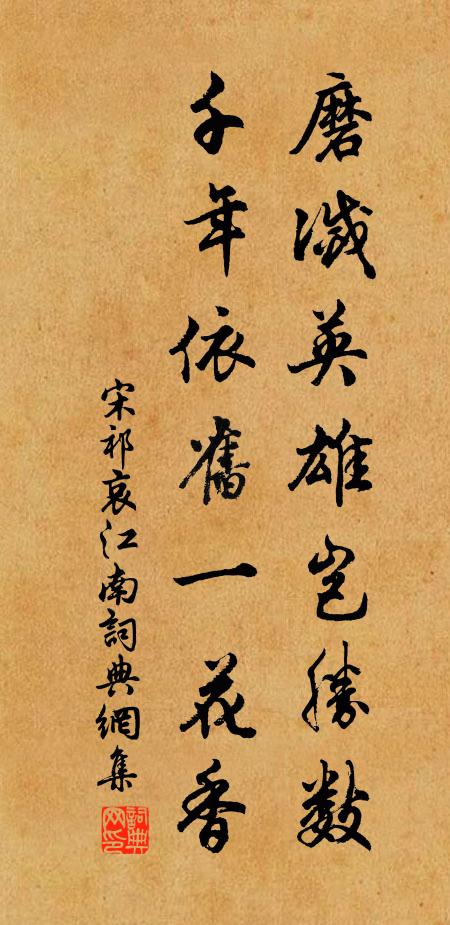 磨滅英雄豈勝數
千年依舊一花香
宋祁哀江南詞典網集
詞典网印